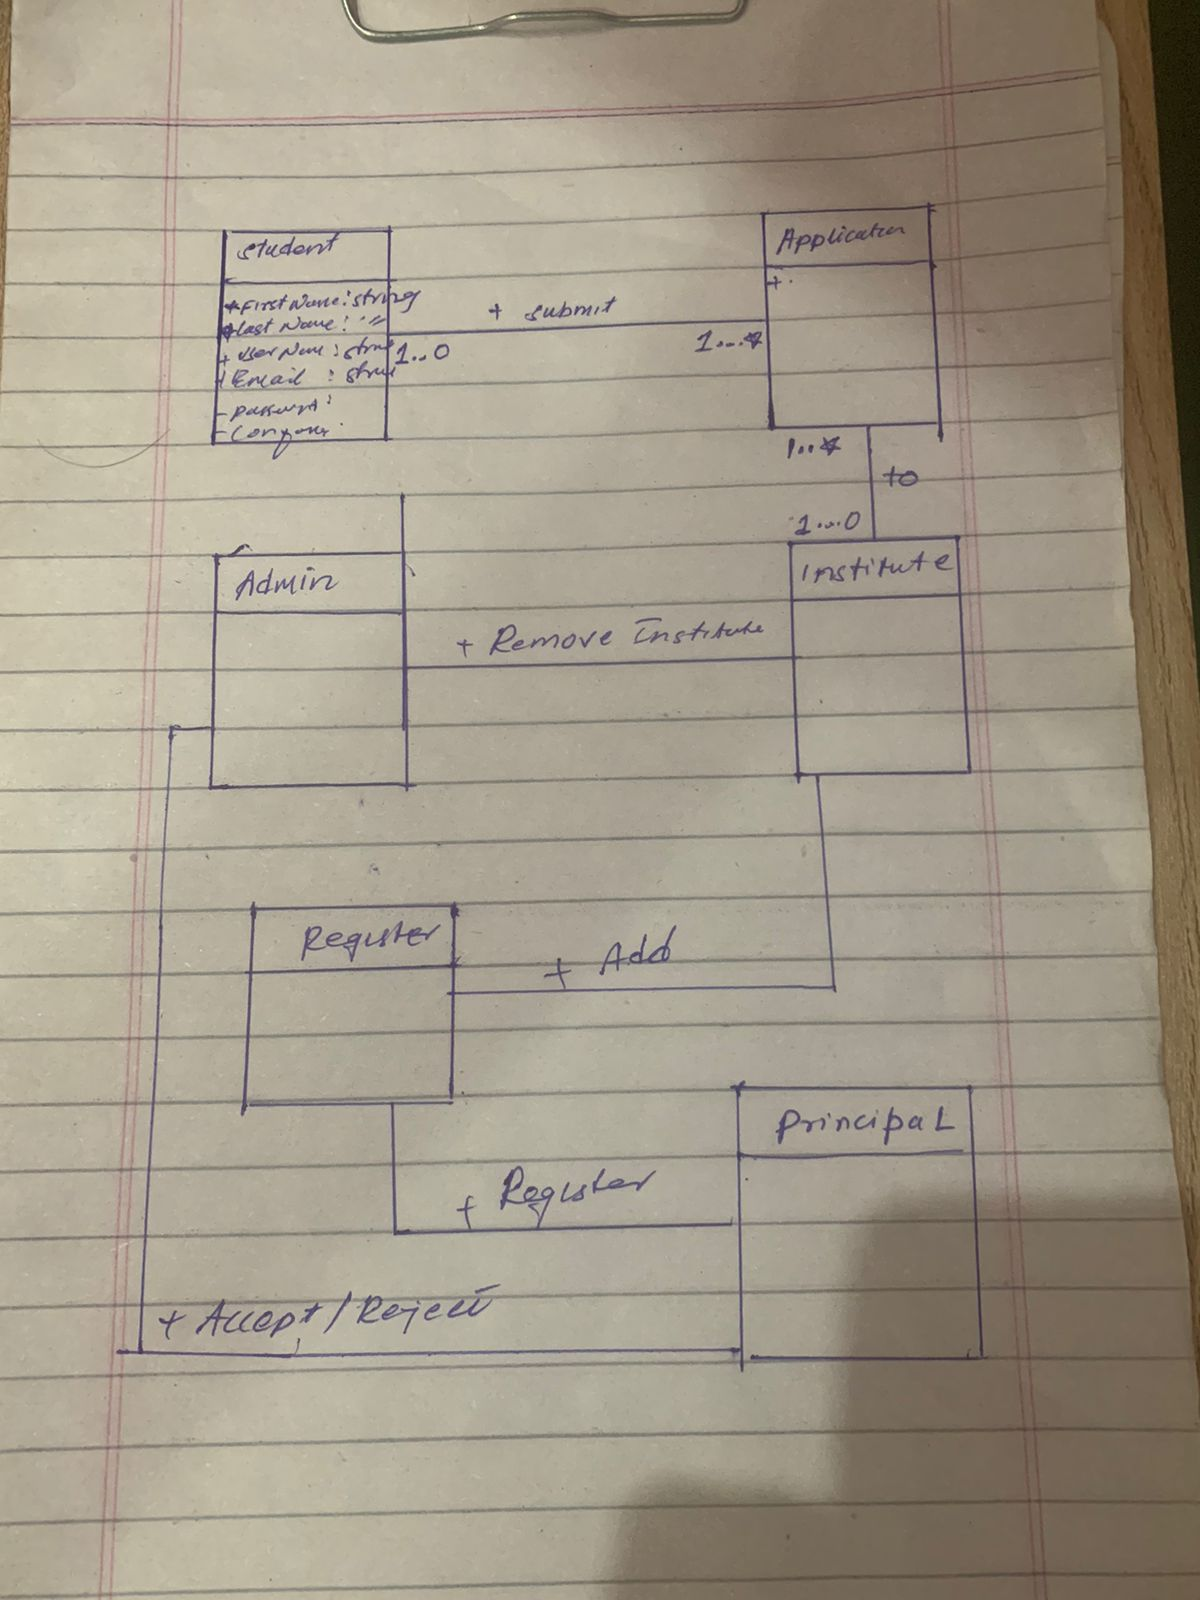 Student
+ First Name: string
+ Last Name: "
+ User Name: strin
+ Email : strin
- password:
- Conform:
+ submit
1..0
1...*
Application
+.
1..*
to
1...0
Institute
Admin
+ Remove Institute
Register
+ Add
Principal
+ Register
+ Accept / Reject